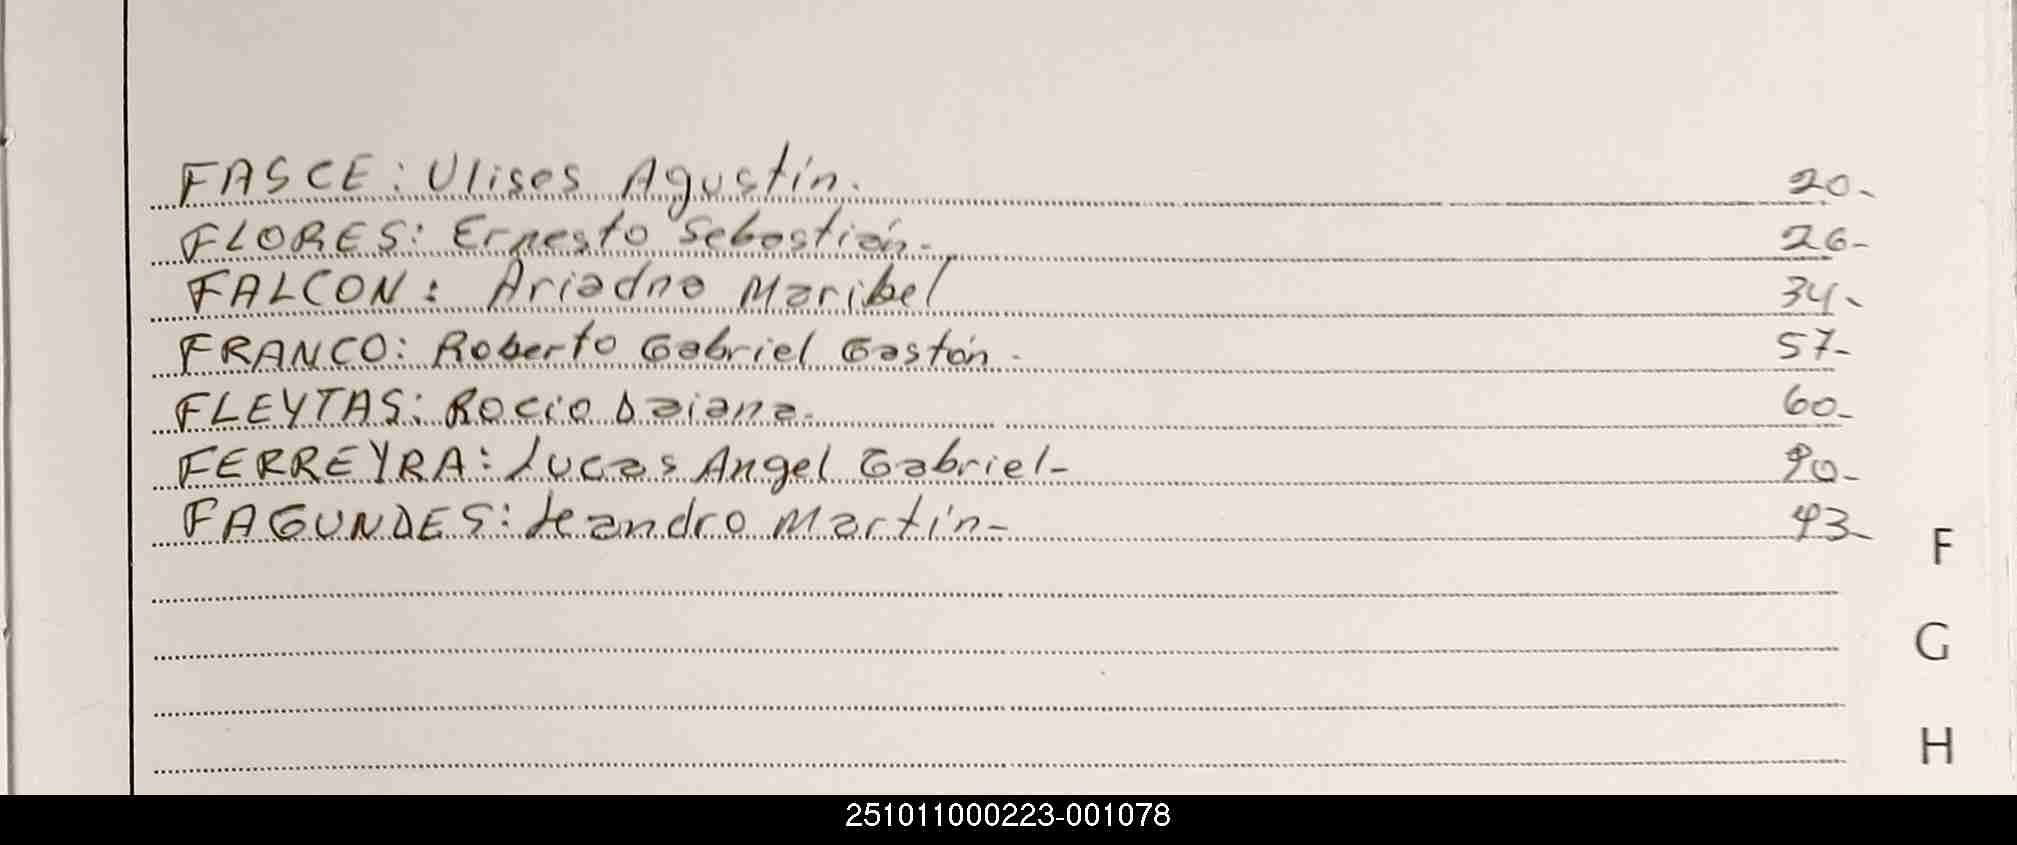 FASCE: Ulises Agustín. 20-
FLORES: Ernesto Sebastián. 26-
FALCON: Ariadna Maribel 34-
FRANCO: Roberto Gabriel Gastón. 57-
FLEYTAS: Rocio Daiana. 60-
FERREYRA: Lucas Angel Gabriel- 90-
FAGUNDES: Leandro Martín- 93-
F
G
H
251011000223-001078